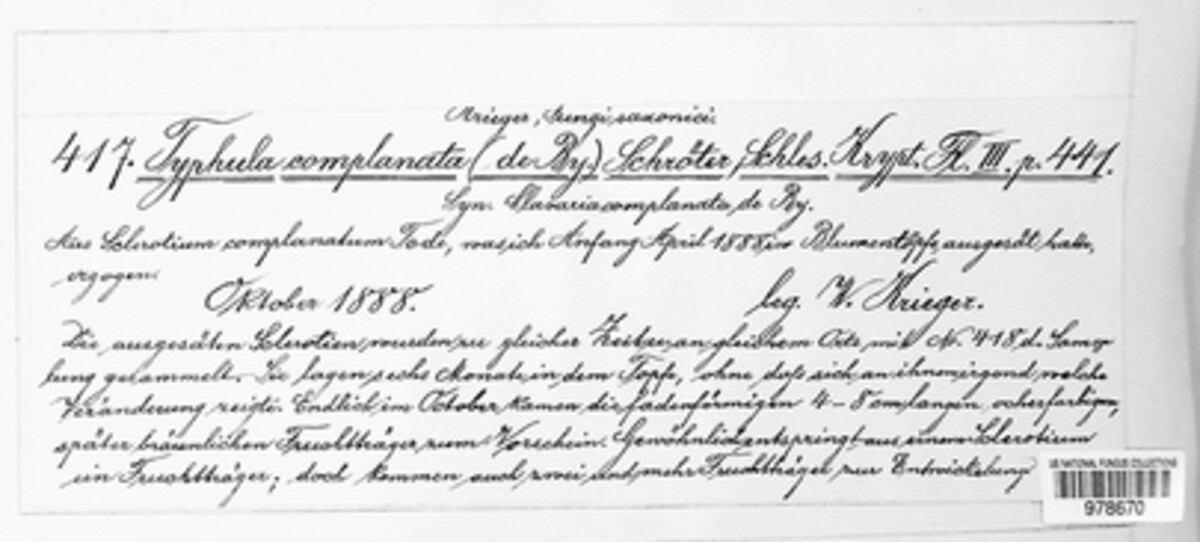 Krieger, Fungi saxonici.
417. Typhula complanata (de By) Schröter, Schles. Krypt. Fl. III. p. 441.
Syn. Clavaria complanata de By.
Aus Sclerotium complanatum Tode, was ich Anfang April 1888 in Blumentöpfe ausgesät hatte,
erzogen.
Oktober 1888. leg. W. Krieger.
Die ausgesäten Sclerotien wurden zu gleicher Zeit u. an gleichem Orte mit Nr. 418 d. Samm-
lung gesammelt. Sie lagen sechs Monate in dem Topfe, ohne daß sich an ihnen irgend welche
Veränderung zeigte. Endlich im October kamen die fadenförmigen 4-8 cm langen, ockerfarbigen,
später bräunlichen Fruchtträger zum Vorschein. Gewöhnlich entspringt aus einem Sclerotium
ein Fruchtträger; doch kommen auch zwei und mehr Fruchtträger zur Entwickelung
US NATIONAL FUNGUS COLLECTIONS
978670